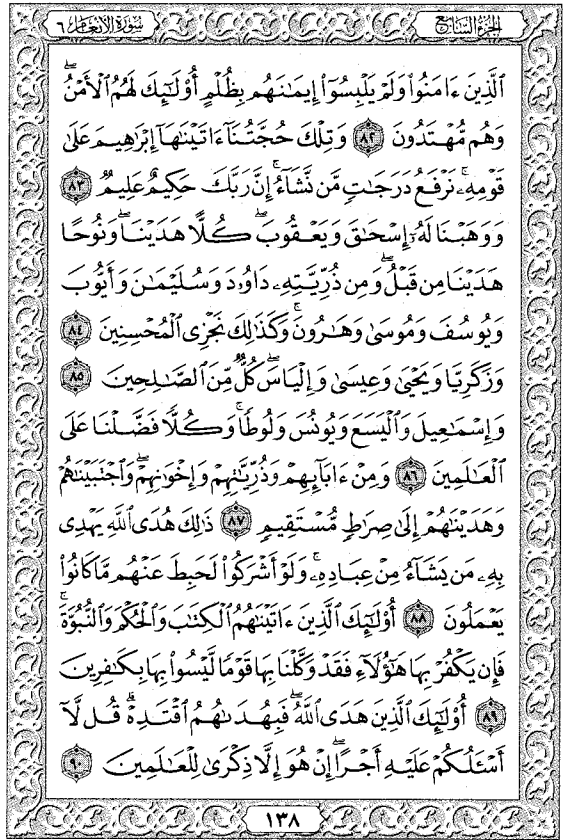 الجزء السابع
سورة الأنعام ٦
ٱلَّذِينَ ءَامَنُوا۟ وَلَمْ يَلْبِسُوٓا۟ إِيمَٰنَهُم بِظُلْمٍ أُو۟لَٰٓئِكَ لَهُمُ ٱلْأَمْنُ
وَهُم مُّهْتَدُونَ ٨٢ وَتِلْكَ حُجَّتُنَآ ءَاتَيْنَٰهَآ إِبْرَٰهِيمَ عَلَىٰ
قَوْمِهِۦ ۚ نَرْفَعُ دَرَجَٰتٍ مَّن نَّشَآءُ ۗ إِنَّ رَبَّكَ حَكِيمٌ عَلِيمٌ ٨٣
وَوَهَبْنَا لَهُۥٓ إِسْحَٰقَ وَيَعْقُوبَ ۚ كُلًّا هَدَيْنَا ۚ وَنُوحًا
هَدَيْنَا مِن قَبْلُ ۖ وَمِن ذُرِّيَّتِهِۦ دَاوُۥدَ وَسُلَيْمَٰنَ وَأَيُّوبَ
وَيُوسُفَ وَمُوسَىٰ وَهَٰرُونَ ۚ وَكَذَٰلِكَ نَجْزِى ٱلْمُحْسِنِينَ ٨٤
وَزَكَرِيَّا وَيَحْيَىٰ وَعِيسَىٰ وَإِلْيَاسَ ۖ كُلٌّ مِّنَ ٱلصَّٰلِحِينَ ٨٥
وَإِسْمَٰعِيلَ وَٱلْيَسَعَ وَيُونُسَ وَلُوطًا ۚ وَكُلًّا فَضَّلْنَا عَلَى
ٱلْعَٰلَمِينَ ٨٦ وَمِنْ ءَابَآئِهِمْ وَذُرِّيَّٰتِهِمْ وَإِخْوَٰنِهِمْ ۖ وَٱجْتَبَيْنَٰهُمْ
وَهَدَيْنَٰهُمْ إِلَىٰ صِرَٰطٍ مُّسْتَقِيمٍ ٨٧ ذَٰلِكَ هُدَى ٱللَّهِ يَهْدِى
بِهِۦ مَن يَشَآءُ مِنْ عِبَادِهِۦ ۚ وَلَوْ أَشْرَكُوا۟ لَحَبِطَ عَنْهُم مَّا كَانُوا۟
يَعْمَلُونَ ٨٨ أُو۟لَٰٓئِكَ ٱلَّذِينَ ءَاتَيْنَٰهُمُ ٱلْكِتَٰبَ وَٱلْحُكْمَ وَٱلنُّبُوَّةَ ۚ
فَإِن يَكْفُرْ بِهَا هَٰٓؤُلَآءِ فَقَدْ وَكَّلْنَا بِهَا قَوْمًا لَّيْسُوا۟ بِهَا بِكَٰفِرِينَ
٨٩ أُو۟لَٰٓئِكَ ٱلَّذِينَ هَدَى ٱللَّهُ ۖ فَبِهُدَىٰهُمُ ٱقْتَدِهْ ۗ قُل لَّآ
أَسْـَٔلُكُمْ عَلَيْهِ أَجْرًا ۖ إِنْ هُوَ إِلَّا ذِكْرَىٰ لِلْعَٰلَمِينَ ٩٠
١٣٨